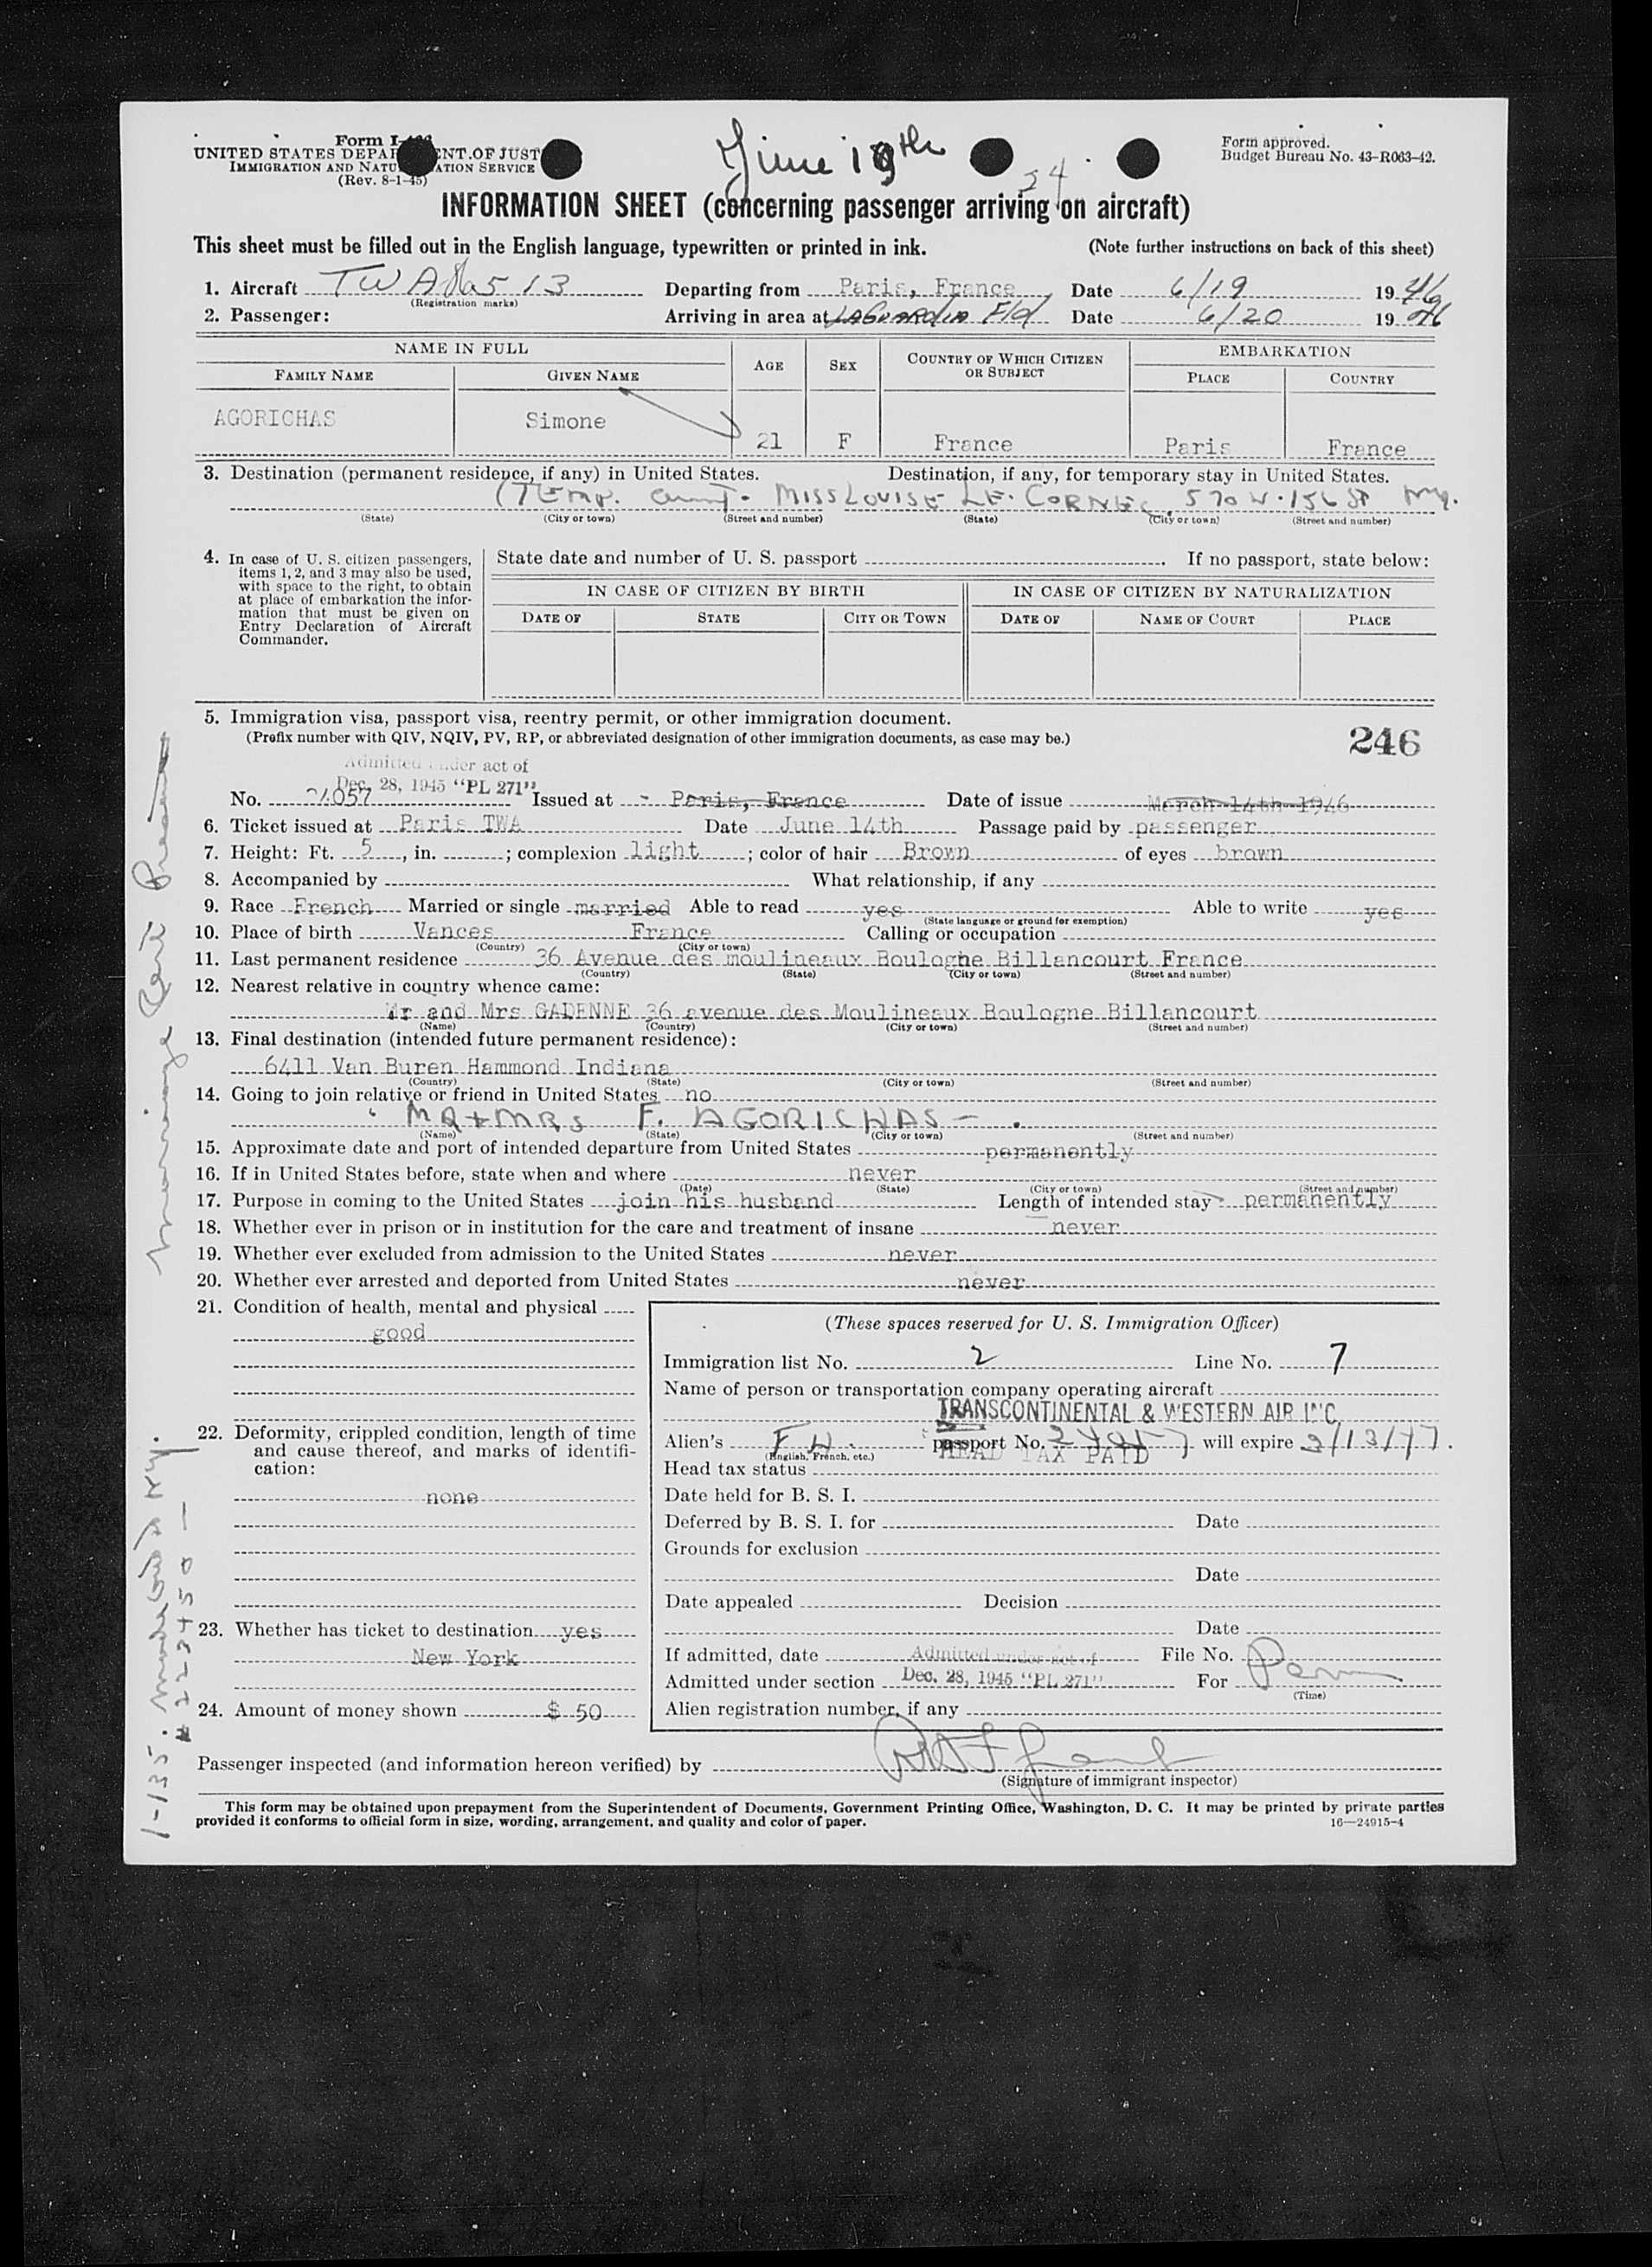 Form I-466
UNITED STATES DEPARTMENT OF JUST
IMMIGRATION AND NATURALIZATION SERVICE
(Rev. 8-1-45)
June 19th
24
Form approved.
Budget Bureau No. 43-R063-42.
INFORMATION SHEET (concerning passenger arriving on aircraft)
This sheet must be filled out in the English language, typewritten or printed in ink. (Note further instructions on back of this sheet)
1. Aircraft TWA 513 Departing from Paris, France Date 6/19 1946
(Registration marks)
2. Passenger: Arriving in area at LAGUARDIA Fld Date 6/20 1946
NAME IN FULL AGE SEX COUNTRY OF WHICH CITIZEN OR SUBJECT EMBARKATION
FAMILY NAME GIVEN NAME PLACE COUNTRY
AGORICHAS Simone 21 F France Paris France
3. Destination (permanent residence, if any) in United States. Destination, if any, for temporary stay in United States.
(TEMP. aunt - MISS LOUISE LE CORNEC, 570 W. 156 St NY.
(State) (City or town) (Street and number) (State) (City or town) (Street and number)
4. In case of U. S. citizen passengers, items 1, 2, and 3 may also be used, with space to the right, to obtain at place of embarkation the information that must be given on Entry Declaration of Aircraft Commander.
State date and number of U. S. passport . If no passport, state below:
IN CASE OF CITIZEN BY BIRTH IN CASE OF CITIZEN BY NATURALIZATION
DATE OF STATE CITY OR TOWN DATE OF NAME OF COURT PLACE
5. Immigration visa, passport visa, reentry permit, or other immigration document.
(Prefix number with QIV, NQIV, PV, RP, or abbreviated designation of other immigration documents, as case may be.)
246
Admitted under act of
Dec. 28, 1945 "PL 271"
No. 24057 Issued at - Paris, France Date of issue March 14th 1946
6. Ticket issued at Paris TWA Date June 14th Passage paid by passenger
7. Height: Ft. 5, in. ; complexion light; color of hair Brown of eyes brown
8. Accompanied by What relationship, if any
9. Race French Married or single married Able to read yes Able to write yes
(State language or ground for exemption)
10. Place of birth Vances France Calling or occupation
(Country) (City or town)
11. Last permanent residence 36 Avenue des moulineaux Boulogne Billancourt France
(Country) (State) (City or town) (Street and number)
12. Nearest relative in country whence came:
Mr and Mrs GADENNE 36 avenue des Moulineaux Boulogne Billancourt
(Name) (Country) (City or town) (Street and number)
13. Final destination (intended future permanent residence):
6411 Van Buren Hammond Indiana
(Country) (State) (City or town) (Street and number)
14. Going to join relative or friend in United States no
MR + MRS F. AGORICHAS -
(Name) (State) (City or town) (Street and number)
15. Approximate date and port of intended departure from United States permanently
16. If in United States before, state when and where never
(Date) (State) (City or town) (Street and number)
17. Purpose in coming to the United States join his husband Length of intended stay permanently
18. Whether ever in prison or in institution for the care and treatment of insane never
19. Whether ever excluded from admission to the United States never
20. Whether ever arrested and deported from United States never
21. Condition of health, mental and physical
good
22. Deformity, crippled condition, length of time and cause thereof, and marks of identification:
none
23. Whether has ticket to destination yes
New York
24. Amount of money shown $ 50
(These spaces reserved for U. S. Immigration Officer)
Immigration list No. 2 Line No. 7
Name of person or transportation company operating aircraft
TRANSCONTINENTAL & WESTERN AIR INC.
Alien's passport No. 24057 will expire
(English, French, etc.)
HEAD TAX PAID
Head tax status
Date held for B. S. I.
Deferred by B. S. I. for Date
Grounds for exclusion
Date
Date appealed Decision
Date
If admitted, date Admitted under act of File No.
Admitted under section Dec. 28, 1945 "PL 271" For Perm
(Time)
Alien registration number, if any
Passenger inspected (and information hereon verified) by
(Signature of immigrant inspector)
This form may be obtained upon prepayment from the Superintendent of Documents, Government Printing Office, Washington, D. C. It may be printed by private parties
provided it conforms to official form in size, wording, arrangement, and quality and color of paper. 16—24915-4
marriage Cert Presented